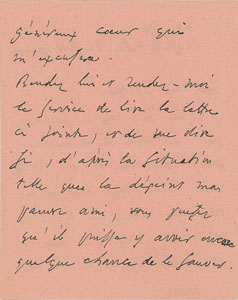 généreux cœur qui
m'excusera.
Rendez lui et rendez-moi
le service de lire la lettre
ci jointe, et de me dire
si, d'après la situation
telle que la dépeint mon
pauvre ami, vous
qu'il puisse y avoir encore
quelque chance de le sauver.